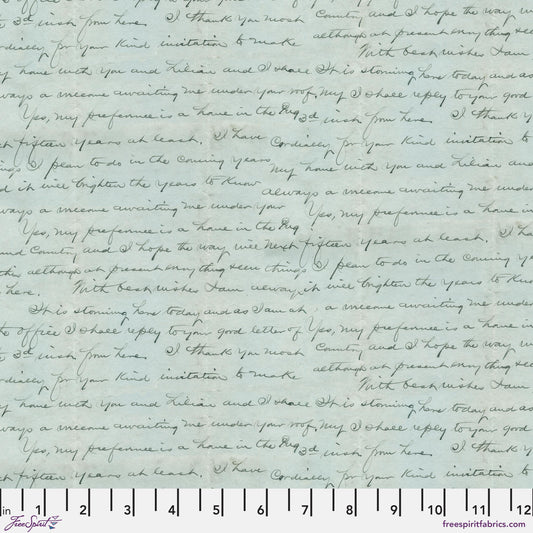 I thank you most Country and I hope the way, w
3d inst from here. although at present everything see
cordially for your kind invitation to make With best wishes I am
y home with you and Lilian and I shall It is storming here today and as
ways a welcome awaiting me under your roof. My I shall reply to your good
Yes, my preference is a home in the 3d inst from here. I thank y
t fifteen years at least. I have Cordially for your kind invitation to
ings I plan to do in the coming years My home with you and Lilian and
d it will brighten the years to know always a welcome awaiting me unde
ways a welcome awaiting me under your Yes, my preference is a home in
Yes, my preference is a home in the
und Country and I hope the way, will next fifteen years at least. I ha
this although at present everything seem things I plan to do in the coming
here. With best wishes I am always it will brighten the years to know
It is storming here today and as I am at a welcome awaiting me unde
office I shall reply to your good letter of Yes, my preference is a home in
3d inst from here. I thank you most Country and I hope the way, w
although at present everything see
cordially for your kind invitation to make With best wishes I am
y home with you and Lilian and I shall It is storming here today and as
ways a welcome awaiting me under your roof. My I shall reply to your good
Yes, my preference is a home in the 3d inst from here. I thank y
t fifteen years at least. I have Cordially for your kind invitation to
in 1 2 3 4 5 6 7 8 9 10 11 12
FreeSpirit freespiritfabrics.com